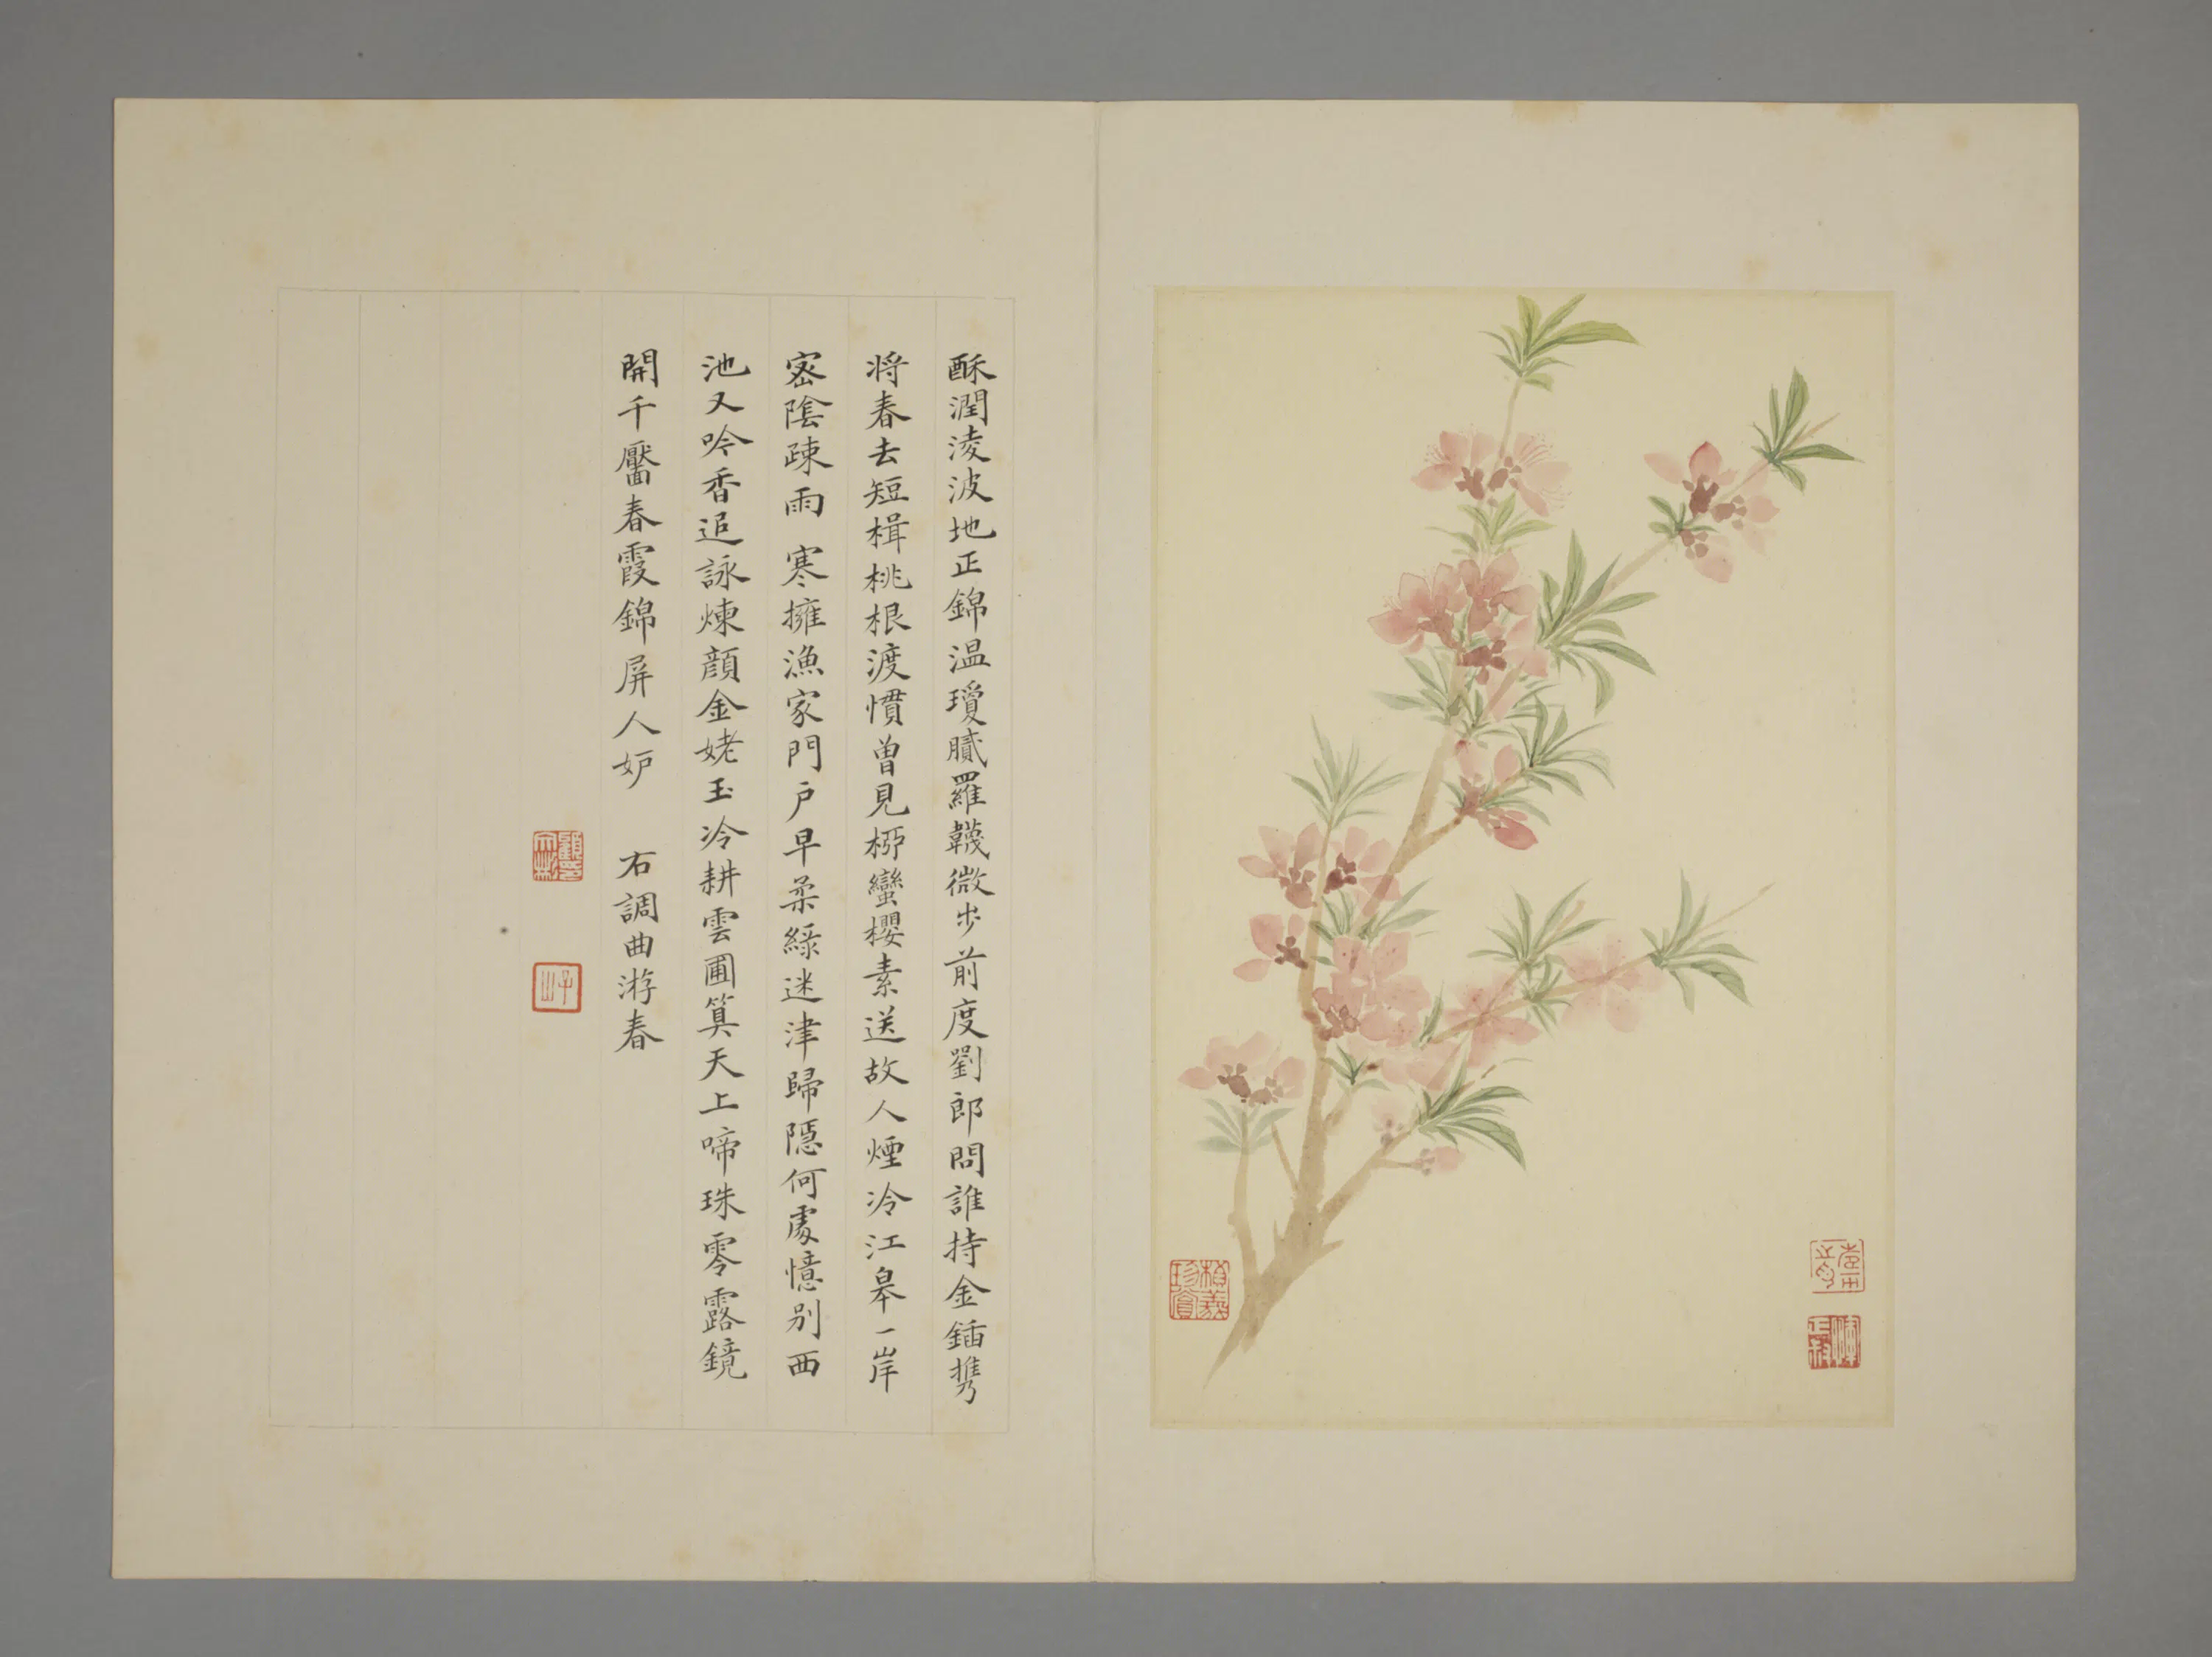 酥潤淩波地正錦温瓊膩羅韈微步前度劉郎問誰持金鍤攜
将春去短楫桃根渡慣曽見柳蠻櫻素送故人煙冷江皋一岸
宻陰疎雨 寒擁漁家門戸早柔緑迷津歸隱何處憶别西
池又吟香追詠煉顔金姥玉冷耕雲圃筭天上啼珠零露鏡
開千靨春霞錦屏人妒 右調曲游春